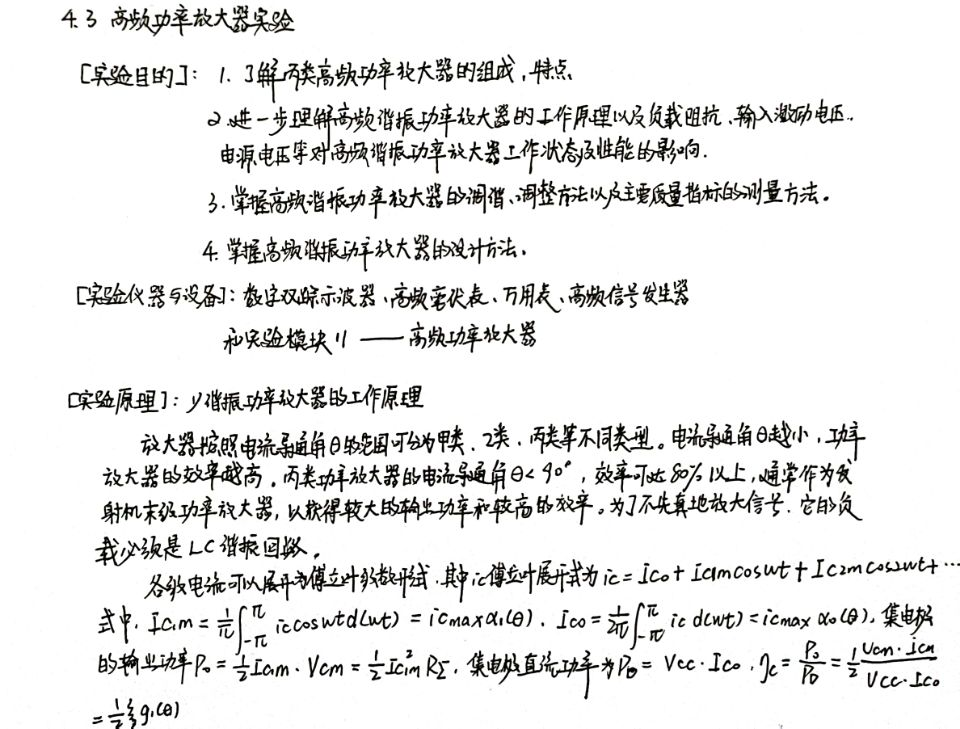 4.3 高频功率放大器实验
[实验目的]: 1. 了解丙类高频功率放大器的组成、特点
2.进一步理解高频谐振功率放大器的工作原理以及负载阻抗、输入激励电压、
电源电压等对高频谐振功率放大器工作状态及性能的影响.
3. 掌握高频谐振功率放大器的调谐、调整方法以及主要质量指标的测量方法。
4. 掌握高频谐振功率放大器的设计方法.
[实验仪器与设备]: 数字双踪示波器、高频毫伏表、万用表、高频信号发生器
和实验模块11 —— 高频功率放大器
[实验原理]: 1) 谐振功率放大器的工作原理
放大器按照电流导通角θ的范围可分为甲类、乙类、丙类等不同类型。电流导通角θ越小,功率
放大器的效率越高。丙类功率放大器的电流导通角θ<90°,效率可达80%以上,通常作为发
射机末级功率放大器,以获得较大的输出功率和较高的效率。为了不失真地放大信号,它的负
载必须是LC谐振回路。
各级电流可以展开为傅立叶级数形式,其中ic傅立叶展开式为 ic = Ico + Ic1m cosωt + Ic2m cos2ωt + ⋯
式中, Ic1m = 1/π ∫_{-π}^{π} ic cosωt d(ωt) = icmax α1(θ), Ico = 1/2π ∫_{-π}^{π} ic d(ωt) = icmax α0(θ), 集电极
的输出功率Po = 1/2 Ic1m · Vcm = 1/2 Ic1m² RΣ, 集电极直流功率为PD = Vcc · Ico , ηc = Po/PD = 1/2 Vcm · Ic1m / Vcc · Ico
= 1/2 ξ g1(θ)